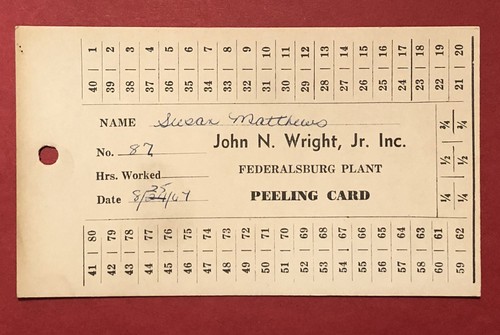 1 2 3 4 5 6 7 8 9 10 11 12 13 14 15 16 17 18 19 20
40 39 38 37 36 35 34 33 32 31 30 29 28 27 26 25 24 23 22 21
NAME Susan Matthews
No. 87
John N. Wright, Jr. Inc.
Hrs. Worked
FEDERALSBURG PLANT
Date 8/25/67
PEELING CARD
3/4 3/4
1/2 1/2
1/4 1/4
80 79 78 77 76 75 74 73 72 71 70 69 68 67 66 65 64 63 62
41 42 43 44 45 46 47 48 49 50 51 52 53 54 55 56 57 58 59 60 61